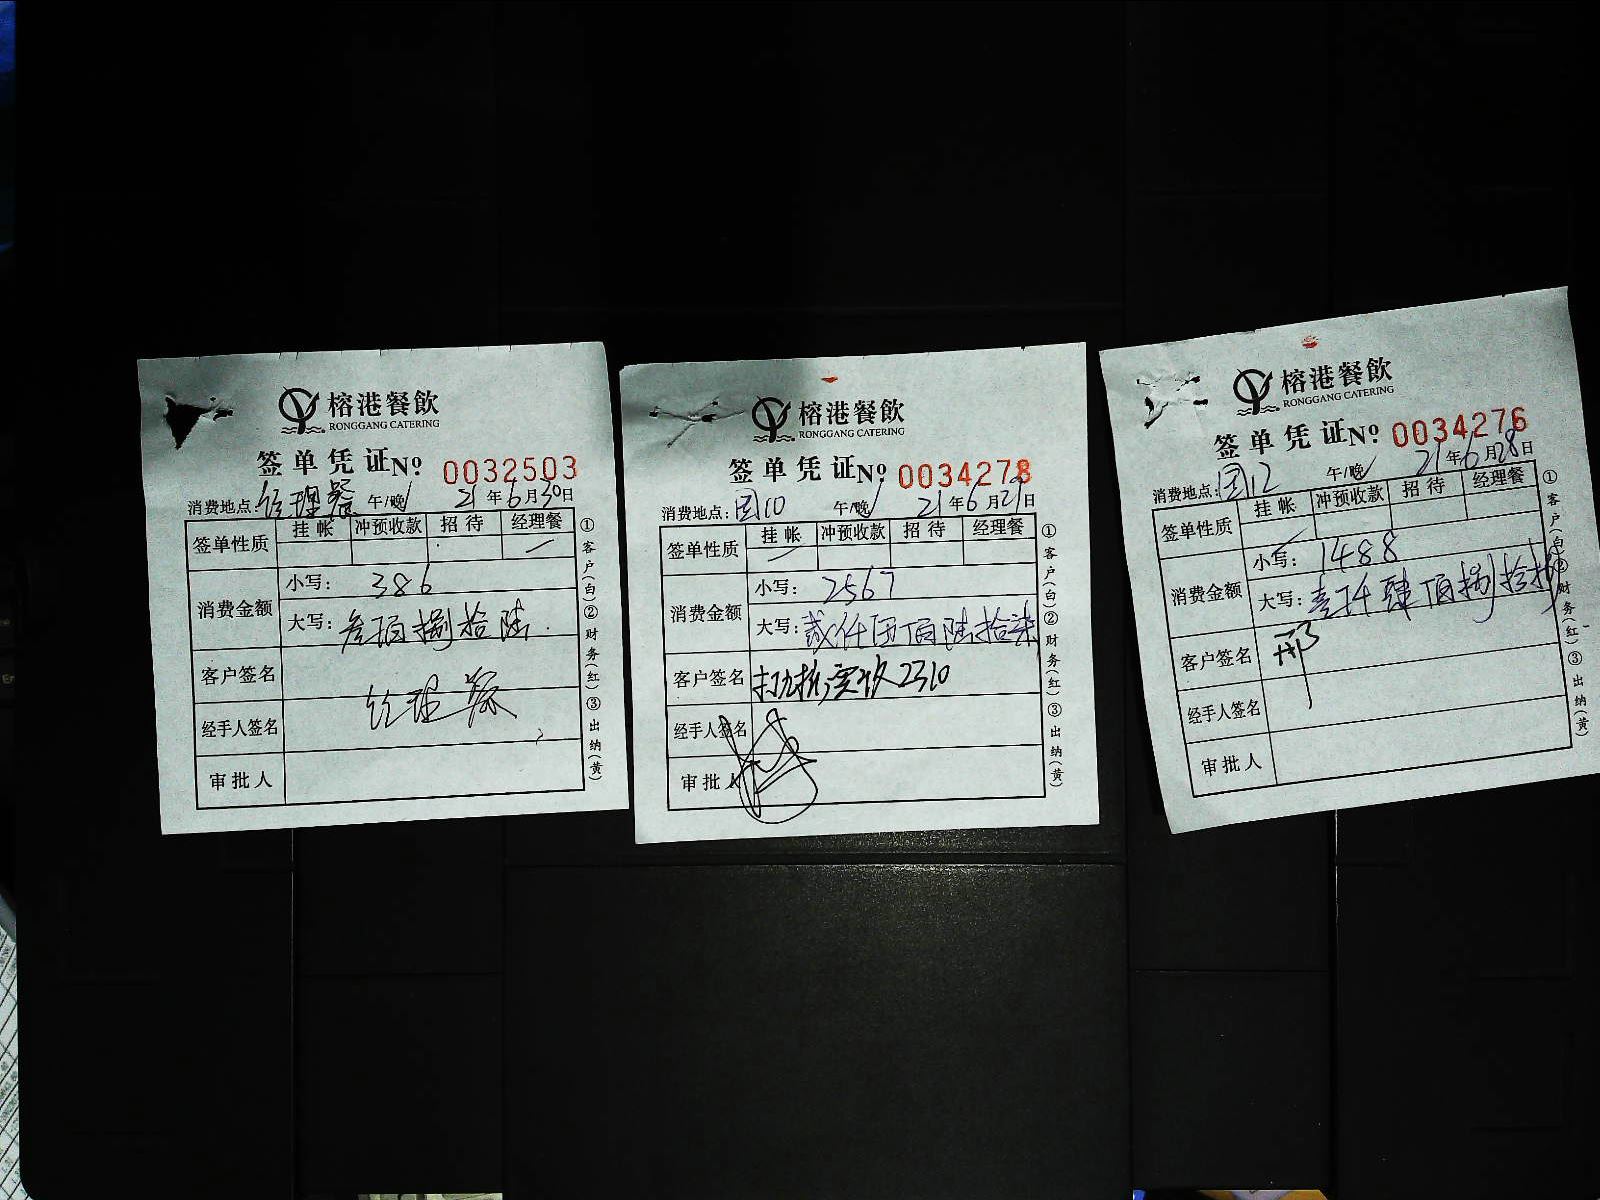 榕港餐飲
RONGGANG CATERING
签单凭证 Nº 0032503
消费地点: 经理餐 午/晚 21年6月30日
签单性质 挂帐 冲预收款 招待 经理餐
消费金额 小写: 386
大写: 叁佰捌拾陆
客户签名
经手人签名 经理餐
审批人
①客户(白)②财务(红)③出纳(黄)
榕港餐飲
RONGGANG CATERING
签单凭证 Nº 0034278
消费地点: 国10 午/晚 21年6月29日
签单性质 挂帐 冲预收款 招待 经理餐
消费金额 小写: 2567
大写: 贰仟伍佰陆拾柒
客户签名 2310
经手人签名
审批人
①客户(白)②财务(红)③出纳(黄)
榕港餐飲
RONGGANG CATERING
签单凭证 Nº 0034276
消费地点: 国12 午/晚 21年6月28日
签单性质 挂帐 冲预收款 招待 经理餐
消费金额 小写: 1488
大写: 壹仟肆佰捌拾捌
客户签名 邢
经手人签名
审批人
①客户(白)②财务(红)③出纳(黄)